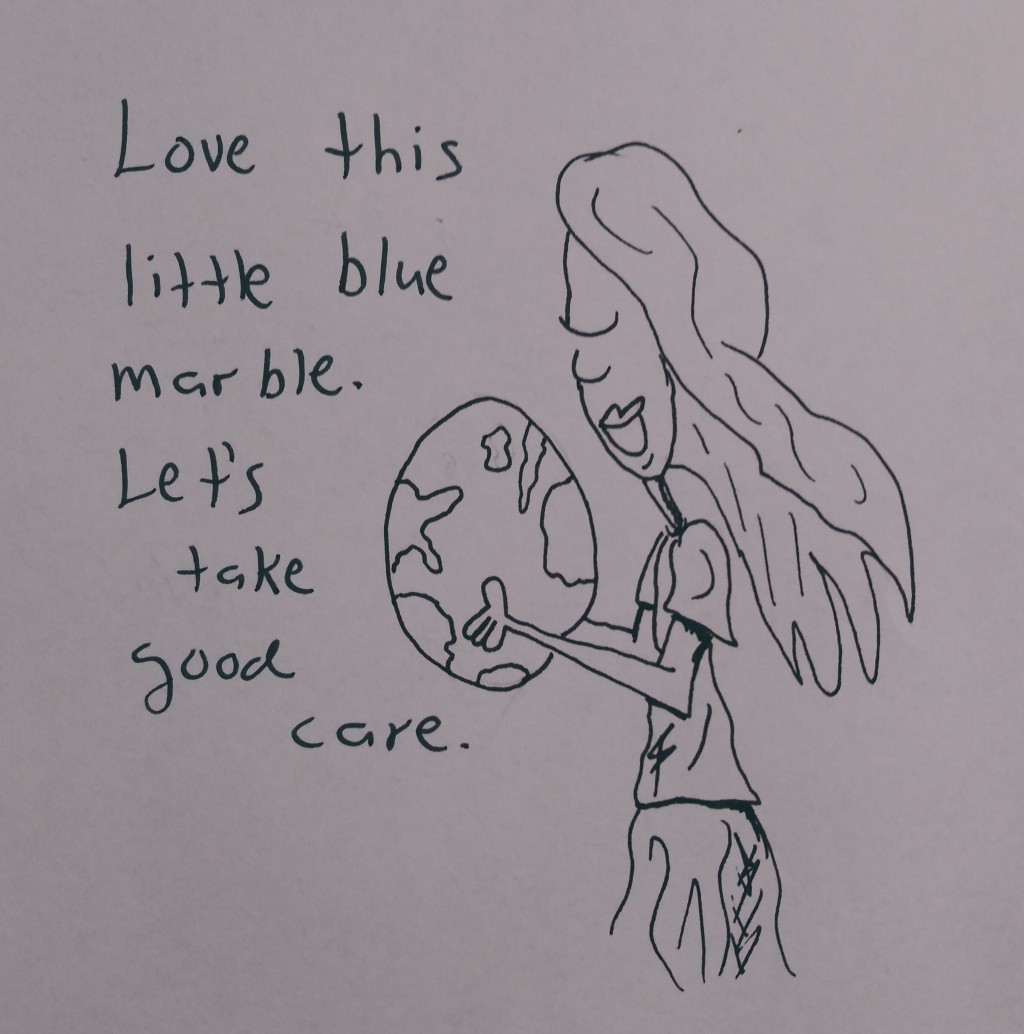 Love this
little blue
marble.
Let's
take
good
care.